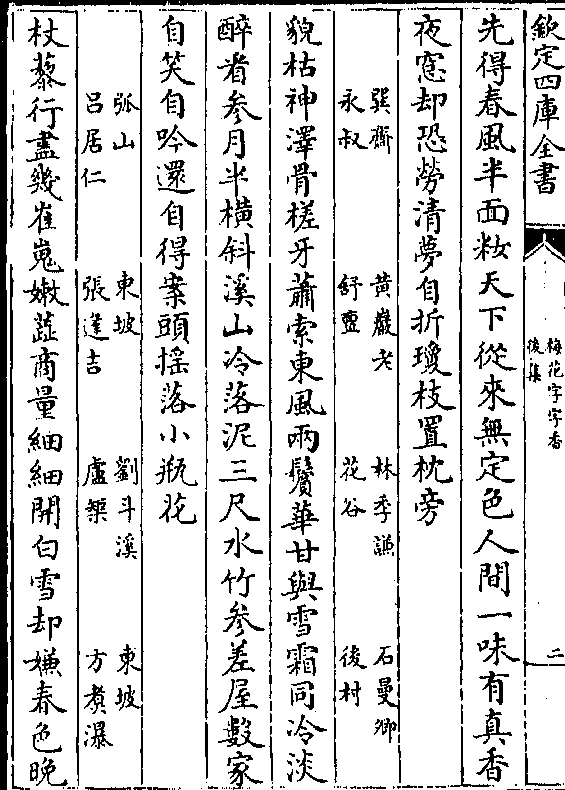 欽定四庫全書
梅花字字香
後集
二
先得春風半面粧天下從來無定色人間一味有真香
夜窓却恐勞清夢自折瓊枝置枕旁
巽齋 黄巖老 林季謙 石曼卿
永叔 舒亶 花谷 後村
貌枯神澤骨槎牙蕭索東風兩鬢華甘與雪霜同冷淡
醉看參月半橫斜溪山冷落泥三尺水竹參差屋數家
自笑自吟還自得案頭揺落小瓶花
弧山 東坡 劉斗溪 東坡
吕居仁 張蓬吉 盧𥱼 方煮瀑
杖藜行盡幾崔嵬嫩蘂商量細細開白雪却嫌春色晚